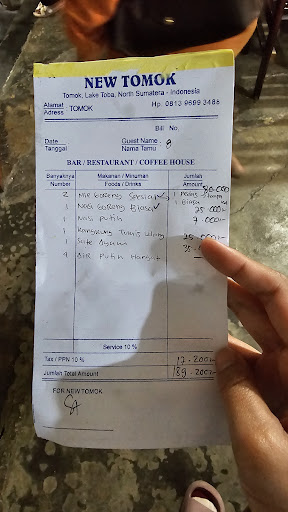 NEW TOMOK
Tomok, Lake Toba, North Sumatera - Indonesia
Alamat
Adress TOMOK Hp. 0813 9699 3488
Bill No.
Date
Tanggal
Guest Name
Nama Tamu
BAR / RESTAURANT / COFFEE HOUSE
Banyaknya Makanan / Minuman Jumlah
Number Foods / Drinks Amount
2 Mie Goreng Spesial 80.000
1 Nasi Goreng Biasa ✓ 25.000
1 Nasi Putih 7.000
1 Kangkung Tumis 25.000
1 Sate Ayam 35.
4 Air Putih Hangat
Service 10 %
Tax / PPN 10 % 17.200
Jumlah Total Amount 189.200
FOR NEW TOMOK